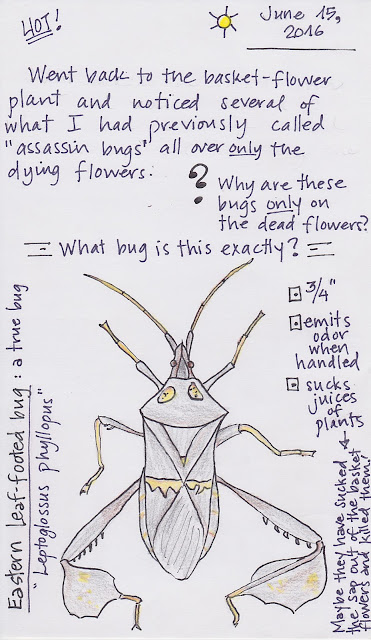 HOT!
June 15,
2016
Went back to the basket-flower
plant and noticed several of
what I had previously called
"assassin bugs" all over only the
dying flowers.
? Why are these
bugs only on
the dead flowers?
What bug is this exactly?
3/4"
emits
odor
when
handled
sucks
juices
of
plants
Maybe they have sucked
the sap out of the basket
flowers and killed them!
Eastern leaf-footed bug: a true bug
"Leptoglossus phyllopus"